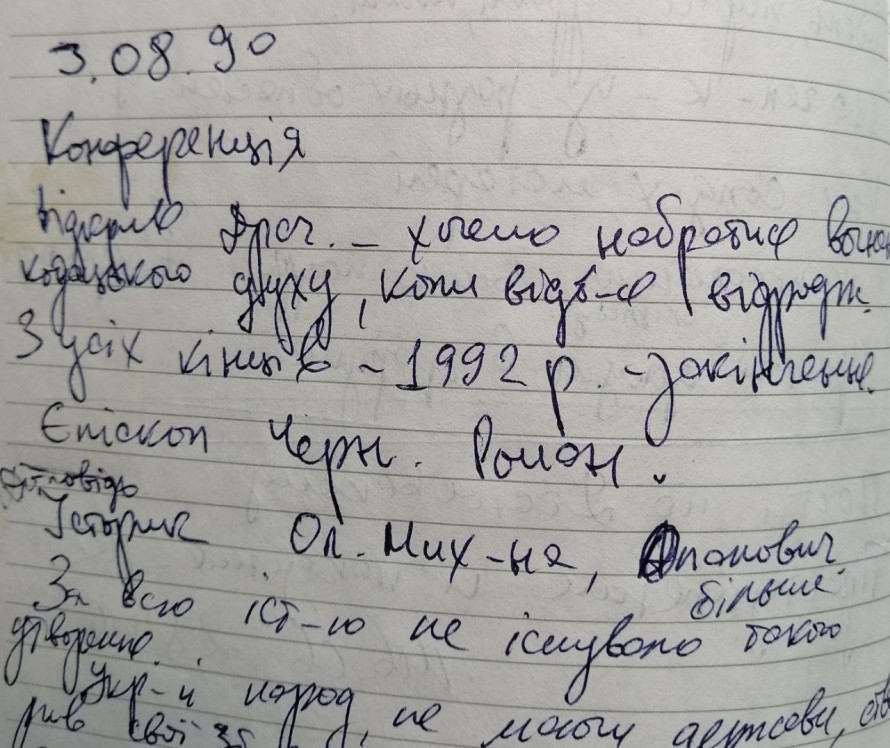 3.08.90
Конференція
Відкрив Драч. – хочемо набратися
козацького духу, коли відб-ся відродж.
З усіх кінців – 1992 р. – закінчення.
Єпіскоп Черн. Роман.
Історик Ол. Мих-на, Апанович.
більше
За всю іст-ю не існувало такого
утворення.
Укр-й народ, не маючи держави,
свої